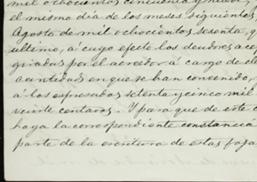 mil ochocientos cincuenta y nueve,
el mismo dia de los meses siguientes
Agosto de mil ochocientos sesenta, y
ultimo, a cuyo efecto los deudores a
por el acreedor a cargo de
cantidad en que se han convenido,
a los espresados setenta y cinco mil
veinte centavos. Y para que de este
haya la correspondiente constancia
parte de la escritura de estas